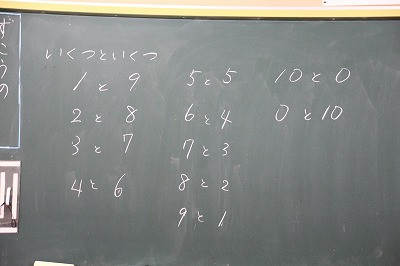 いくつといくつ
1と9
2と8
3と7
4と6
5と5
6と4
7と3
8と2
9と1
10と0
0と10
ずこうの